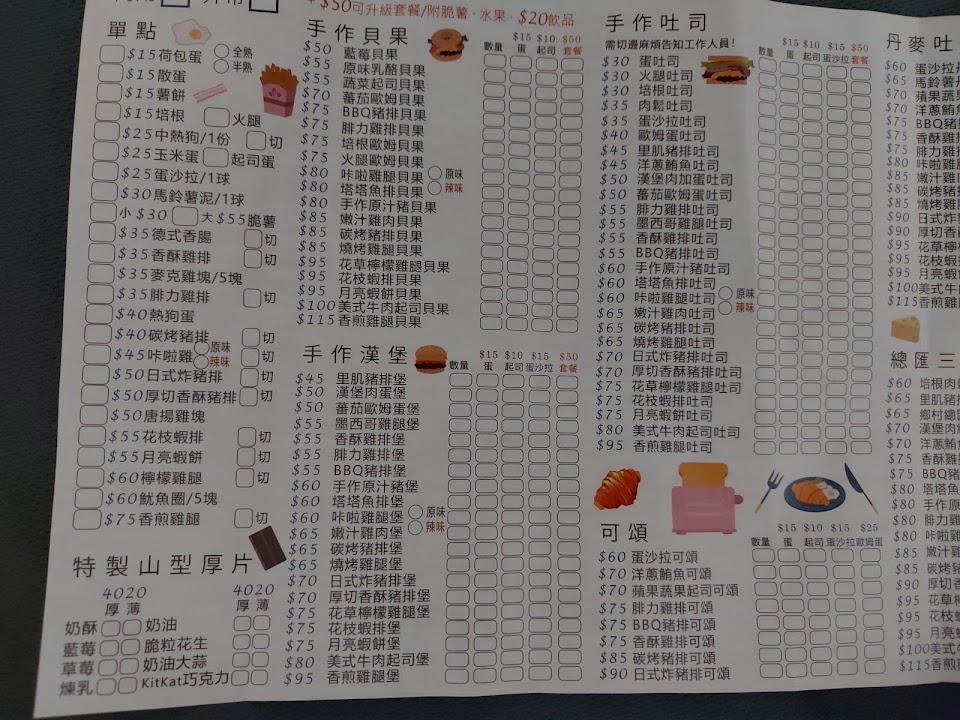 +$50可升級套餐/附脆薯、水果、$20飲品
單點
$15荷包蛋 全熟 半熟
$15散蛋
$15薯餅
$15培根 火腿
$25中熱狗/1份 切
$25玉米蛋 起司蛋
$25蛋沙拉/1球
$30馬鈴薯泥/1球
小$30 大$55脆薯
$35德式香腸 切
$35香酥雞排 切
$35麥克雞塊/5塊
$35腓力雞排 切
$40熱狗蛋
$40碳烤豬排 切
$45咔啦雞 原味 辣味 切
$50日式炸豬排 切
$50厚切香酥豬排 切
$50唐揚雞塊
$55花枝蝦排 切
$55月亮蝦餅 切
$60檸檬雞腿 切
$60魷魚圈/5塊
$75香煎雞腿 切
特製山型厚片
4020 4020
厚 薄 厚 薄
奶酥 奶油
藍莓 脆粒花生
草莓 奶油大蒜
煉乳 KitKat巧克力
手作貝果
數量 $15蛋 $10起司 $50套餐
$50 藍莓貝果
$55 原味乳酪貝果
$55 蔬菜起司貝果
$70 蕃茄歐姆貝果
$75 BBQ豬排貝果
$75 腓力雞排貝果
$75 培根歐姆貝果
$75 火腿歐姆貝果
$80 咔啦雞腿貝果 原味
$80 塔塔魚排貝果 辣味
$80 手作原汁豬貝果
$85 嫩汁雞肉貝果
$85 碳烤豬排貝果
$85 燒烤雞腿貝果
$95 花草檸檬雞腿貝果
$95 花枝蝦排貝果
$95 月亮蝦餅貝果
$100美式牛肉起司貝果
$115香煎雞腿貝果
手作漢堡
數量 $15蛋 $10起司 $15蛋沙拉 $50套餐
$45 里肌豬排堡
$50 漢堡肉蛋堡
$50 蕃茄歐姆蛋堡
$55 墨西哥雞腿堡
$55 香酥雞排堡
$55 腓力雞排堡
$55 BBQ豬排堡
$60 手作原汁豬堡
$60 塔塔魚排堡
$60 咔啦雞腿堡 原味
$65 嫩汁雞肉堡 辣味
$65 碳烤豬排堡
$65 燒烤雞腿堡
$70 日式炸豬排堡
$70 厚切香酥豬排堡
$75 花草檸檬雞腿堡
$75 花枝蝦排堡
$75 月亮蝦餅堡
$80 美式牛肉起司堡
$95 香煎雞腿堡
手作吐司
需切邊麻煩告知工作人員!
數量 $15蛋 $10起司 $15蛋沙拉 $50套餐
$30 蛋吐司
$30 火腿吐司
$30 培根吐司
$35 肉鬆吐司
$35 蛋沙拉吐司
$40 歐姆蛋吐司
$45 里肌豬排吐司
$45 洋蔥鮪魚吐司
$50 漢堡肉加蛋吐司
$50 蕃茄歐姆蛋吐司
$55 腓力雞排吐司
$55 墨西哥雞腿吐司
$55 香酥雞排吐司
$55 BBQ豬排吐司
$60 手作原汁豬吐司
$60 塔塔魚排吐司
$60 咔啦雞腿吐司 原味
$65 嫩汁雞肉吐司 辣味
$65 碳烤豬排吐司
$65 燒烤雞腿吐司
$70 日式炸豬排吐司
$70 厚切香酥豬排吐司
$75 花草檸檬雞腿吐司
$75 花枝蝦排吐司
$75 月亮蝦餅吐司
$80 美式牛肉起司吐司
$95 香煎雞腿吐司
可頌
數量 $15蛋 $10起司 $15蛋沙拉 $25歐姆蛋
$60 蛋沙拉可頌
$70 洋蔥鮪魚可頌
$70 蘋果蔬果起司可頌
$75 腓力雞排可頌
$75 BBQ豬排可頌
$75 香酥雞排可頌
$85 碳烤豬排可頌
$90 日式炸豬排可頌
丹麥吐
$60 蛋沙拉丹
$65 馬鈴薯丹
$70 蘋果蔬果
$70 洋蔥鮪魚
$75 BBQ豬
$75 香酥雞
$75 腓力雞
$80 咔啦雞
$85 嫩汁雞
$85 碳烤豬
$85 燒烤雞
$90 日式炸
$90 厚切香
$95 花草檸
$95 花枝蝦
$95 月亮蝦
$100美式牛
$115香煎雞
總匯三
$60 培根肉
$65 里肌豬
$65 鄉村總
$70 漢堡肉
$70 洋蔥鮪
$75 香酥雞
$75 BBQ
$80 塔塔魚
$80 手作原
$80 腓力雞
$80 咔啦雞
$85 嫩汁雞
$85 碳烤豬
$90 厚切香
$95 花草
$95 花枝
$95 月亮
$100美式
$115香煎